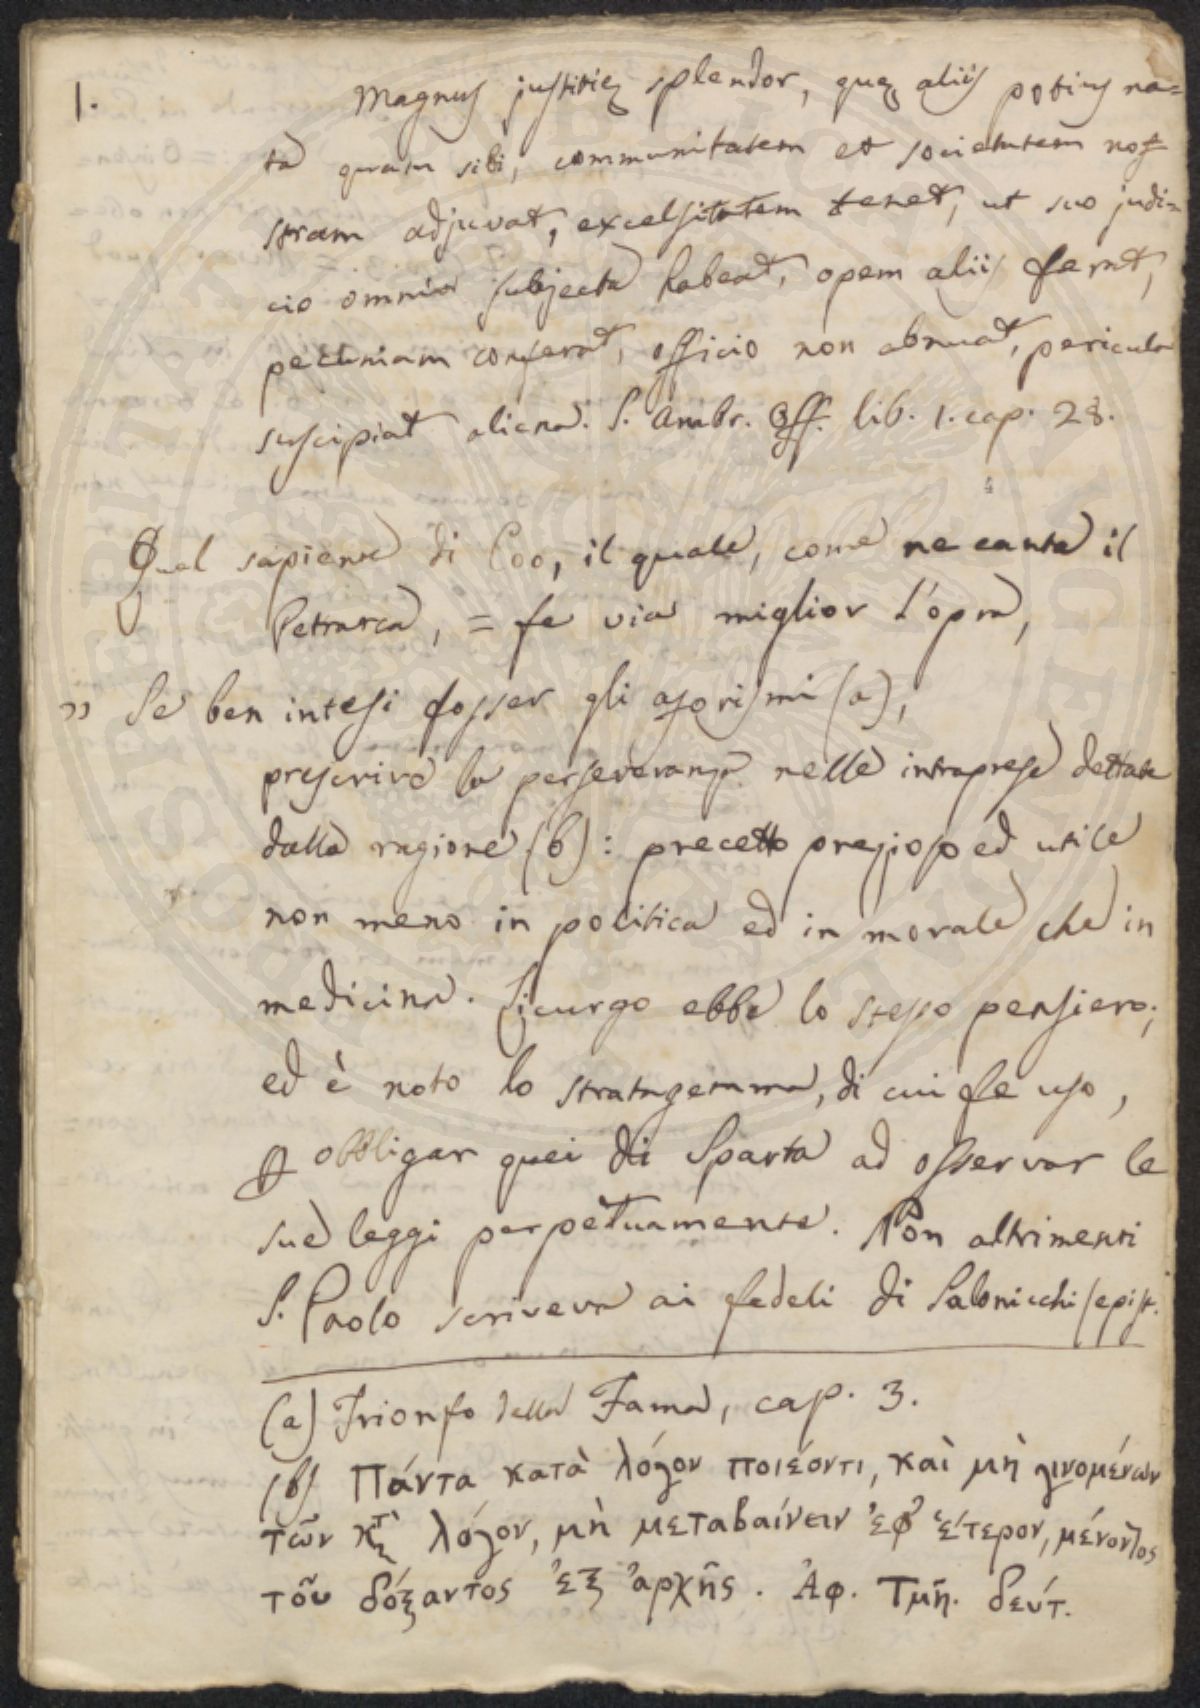 1.
Magnus justitię splendor, quę aliis potius na=
ta quam sibi, communitatem et societatem no=
stram adjuvat, excelsitatem tenet, ut suo judi=
cio omnia subjecta habeat, opem aliis ferat,
pecuniam conferat, officio non abnuat, pericula
suscipiat aliena. S. Ambr. Off. lib. 1. cap. 28.
Quel sapiente di Coo, il quale, come ne canta il
Petrarca, = fe via miglior l'opra,
" Se ben intesi fosser gli aforismi (a),
prescrive la perseveranza nelle intraprese dettate
dalla ragione (b): precetto prezioso ed utile
non meno in politica ed in morale che in
medicina. Licurgo ebbe lo stesso pensiero;
ed è noto lo stratagemma, di cui fe uso,
ꝑ obbligar quei di Sparta ad osservar le
sue leggi perpetuamente. Non altrimenti
S. Paolo scriveva ai fedeli di Salonicchi (epist.
(a) Trionfo della Fama, cap. 3.
(b) Πάντα κατὰ λόγον ποιέοντι, καὶ μὴ γινομένων
τῶν κτ̀ λόγον, μὴ μεταβαίνειν ἐφ' ἕτερον, μένοντος
τοῦ δόξαντος ἐξ ἀρχῆς. Ἀφ. Τμῆ. δεύτ.